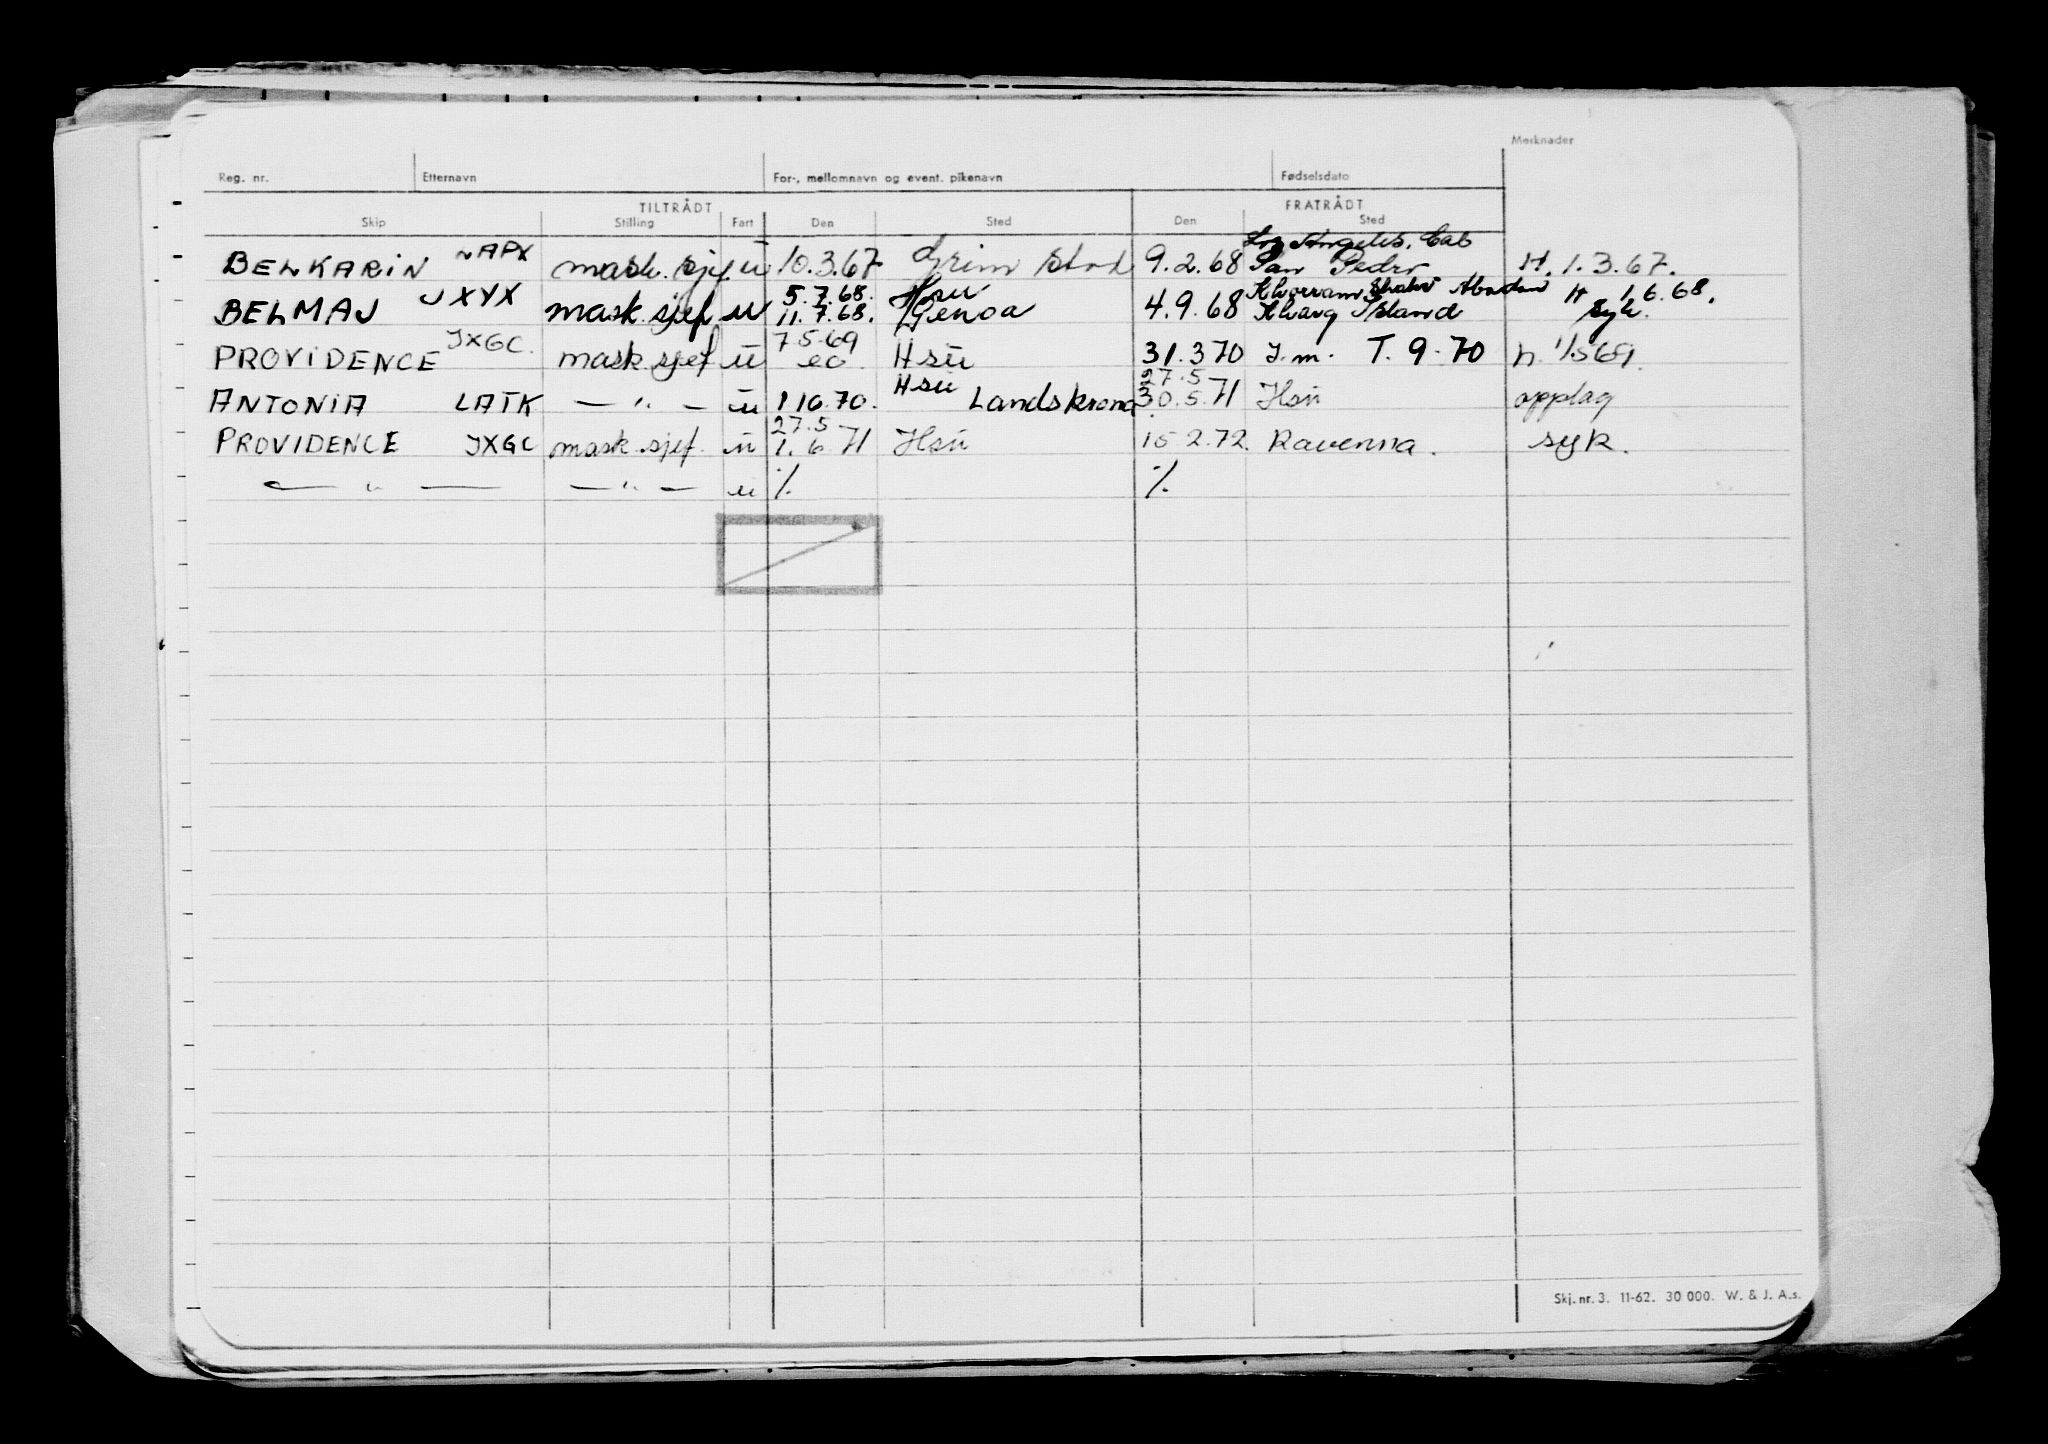 Merknader
Reg. nr. Etternavn For-, mellomnavn og event. pikenavn Fødselsdato
TILTRÅDT FRATRÅDT
Skip Stilling Fart Den Sted Den Sted
Los Angeles. Cal
BELKARIN LAPX mask. sjef u 10.3.67 Grimstad 9.2.68 San Pedro H. 1.3.67.
5.7.68. Hsu Khorram Shahr Abadan H 1.6.68.
BELMAJ JXYX mask. sjef u 11.7.68. Genoa 4.9.68 Kharg Island syk.
7.5.69
PROVIDENCE JXGC. mask. sjef u Hsu 31.3.70 T. 9.70 h. 1/5 69.
Hsu 27.5
ANTONIA LATK — " — u 1.10.70. Landskrona 30.5.71 Hsu opplag
27.5
PROVIDENCE JXGC mask. sjef. u 1.6.71 Hsu 15.2.72. Ravenna. syk.
— " — — " — u % %
Skj. nr. 3. 11-62. 30 000. W. & J. A.s.